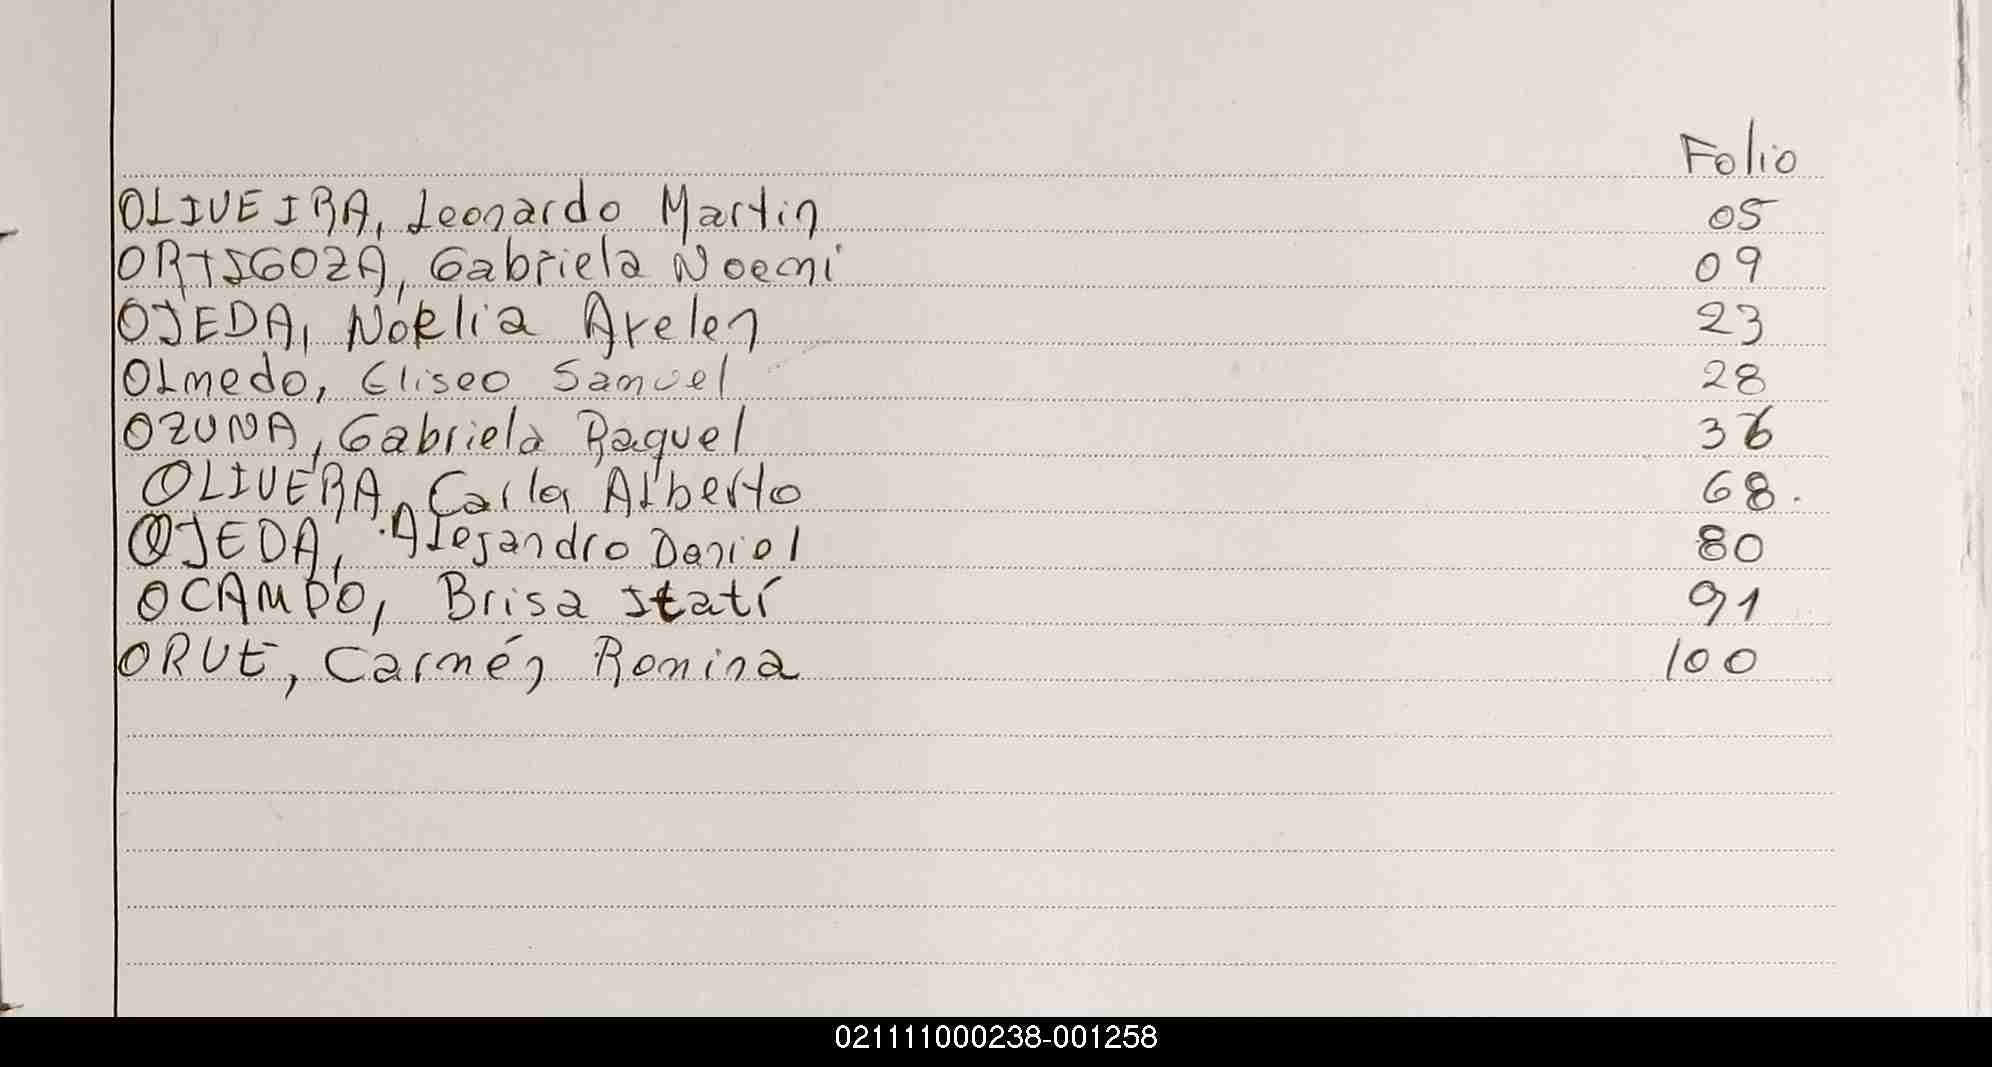 Folio
OLIVEIRA, Leonardo Martin 05
ORTIGOZA, Gabriela Noemi 09
OJEDA, Noelia Arelen 23
OLmedo, Eliseo Samuel 28
OZUNA, Gabriela Raquel 36
OLIVERA, Carlos Alberto 68.
OJEDA, Alejandro Daniel 80
OCAMPO, Brisa Itatí 91
ORUE, Carmén Romina 100
021111000238-001258